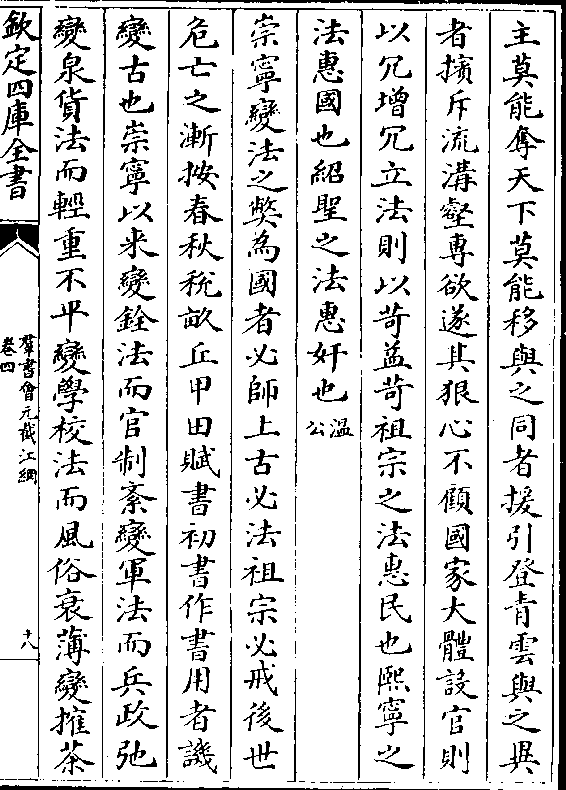 主莫能奪天下莫能移與之同者援引登青雲與之異
者擯斥流溝壑専欲遂其狠心不顧國家大體設官則
以冗增冗立法則以苛益苛祖宗之法惠民也熙寧之
法惠國也紹聖之法惠奸也温公
崇寧變法之弊為國者必師上古必法祖宗必戒後世
危亡之漸按春秋稅畝丘甲田賦書初書作書用者譏
變古也崇寧以来變銓法而官制紊變軍法而兵政弛
變泉貨法而輕重不平變學校法而風俗衰薄變搉茶
欽定四庫全書
羣書會元截江網
卷四
十八